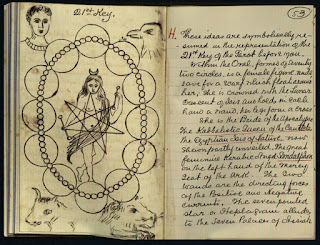 21st Key.
53
H. These ideas are symbolically re-
sumed in the representation of the
21st Key of the Tarot before you.
Within the Oval, formed of seventy
two circles, is a female figure, nude
save for a scarf which floats around
her. She is crowned with the Lunar
Crescent of Isis and holds in each
hand a wand, her legs form a cross.
She is the Bride of the Apocalypse
The Kabbalistic Queen of the Canticles
The Egyptian Isis of Nature, now
Shown partly unveiled, The Great
feminine Kerubic Angel Sandalphon
on the left hand of the Mercy
Seat of the Ark. The two
Wands are the directing forces
of the Positive and Negative
currents. The seven pointed
star or Heptagram alludes
to the Seven Palaces of Assiah,